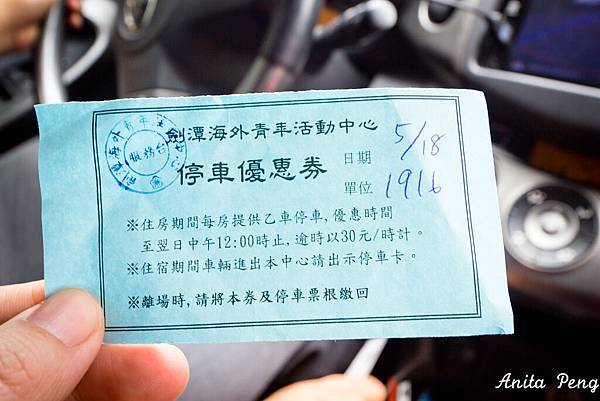 劍潭海外青年活動中心
停車優惠券
日期 5/18
單位 1916
※住房期間每房提供乙車停車,優惠時間
至翌日中午12:00時止,逾時以30元/時計。
※住宿期間車輛進出本中心請出示停車卡。
※離場時,請將本券及停車票根繳回
服務台
Anita Peng